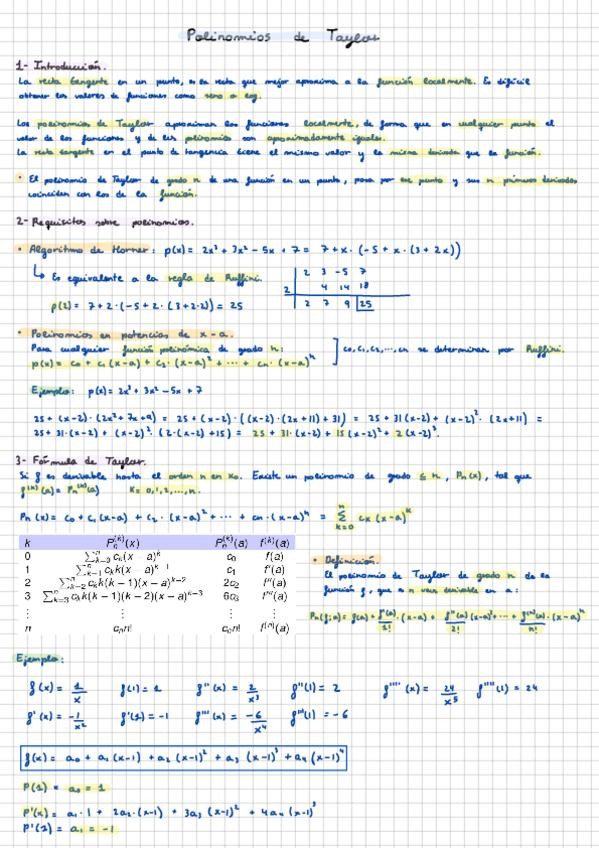 Polinomios de Taylor
1- Introducción.
La recta tangente en un punto, es la recta que mejor aproxima a la función localmente. Es difícil
obtener los valores de funciones como seno o log.
Los polinomios de Taylor aproximan las funciones localmente, de forma que en cualquier punto el
valor de las funciones y de los polinomios son aproximadamente iguales.
La recta tangente en el punto de tangencia tiene el mismo valor y la misma derivada que la función.
• El polinomio de Taylor de grado n de una función en un punto, pasa por ese punto y sus n primeras derivadas
coinciden con las de la función.
2- Requisitos sobre polinomios.
• Algoritmo de Horner: p(x) = 2x³ + 3x² - 5x + 7 = 7 + x · (-5 + x · (3 + 2x))
↳ Es equivalente a la regla de Ruffini.
p(2) = 7 + 2 · (-5 + 2 · (3 + 2·2)) = 25
2 3 -5 7
2 4 14 18
2 7 9 25
• Polinomios en potencias de x - a.
Para cualquier función polinómica de grado n:
p(x) = c₀ + c₁ (x-a) + c₂ · (x-a)² + ... + cn · (x-a)ⁿ
c₀, c₁, c₂, ..., cn se determinan por Ruffini.
Ejemplo: p(x) = 2x³ + 3x² - 5x + 7
25 + (x-2) · (2x² + 7x + 9) = 25 + (x-2) · ((x-2) · (2x+11) + 31) = 25 + 31(x-2) + (x-2)² · (2x+11) =
25 + 31·(x-2) + (x-2)² · (2·(x-2) + 15) = 25 + 31·(x-2) + 15(x-2)² + 2(x-2)³.
3- Fórmula de Taylor.
Si f es derivable hasta el orden n en x₀. Existe un polinomio de grado ≤ n, Pn(x), tal que
f⁽ᵏ⁾(a) = Pn⁽ᵏ⁾(a) K = 0, 1, 2, ..., n.
Pn(x) = c₀ + c₁(x-a) + c₂ · (x-a)² + ... + cn · (x-a)ⁿ = Σ_{k=0}^{n} cₖ(x-a)ᵏ
k Pₙ⁽ᵏ⁾(x) Pₙ⁽ᵏ⁾(a) f⁽ᵏ⁾(a)
0 Σ_{k=0}^{n} cₖ(x − a)ᵏ c₀ f(a)
1 Σ_{k=1}^{n} cₖk(x − a)ᵏ⁻¹ c₁ f'(a)
2 Σ_{k=2}^{n} cₖk(k − 1)(x − a)ᵏ⁻² 2c₂ f''(a)
3 Σ_{k=3}^{n} cₖk(k − 1)(k − 2)(x − a)ᵏ⁻³ 6c₃ f'''(a)
⋮ ⋮ ⋮ ⋮
n cₙn! cₙn! f⁽ⁿ⁾(a)
• Definición.
El polinomio de Taylor de grado n de la
función f, que es n veces derivable en a:
Pn(f;a) = f(a) + f'(a)/1! · (x-a) + f''(a)/2! (x-a)² + ... + f⁽ⁿ⁾(a)/n! · (x-a)ⁿ
Ejemplo:
f(x) = 1/x f(1) = 1 f''(x) = 2/x³ f''(1) = 2 f''''(x) = 24/x⁵ f''''(1) = 24
f'(x) = -1/x² f'(1) = -1 f'''(x) = -6/x⁴ f'''(1) = -6
f(x) = a₀ + a₁ (x-1) + a₂ (x-1)² + a₃ (x-1)³ + a₄ (x-1)⁴
P(1) = a₀ = 1
P'(x) = a₁ · 1 + 2a₂ · (x-1) + 3a₃ (x-1)² + 4a₄ (x-1)³
P'(1) = a₁ = -1